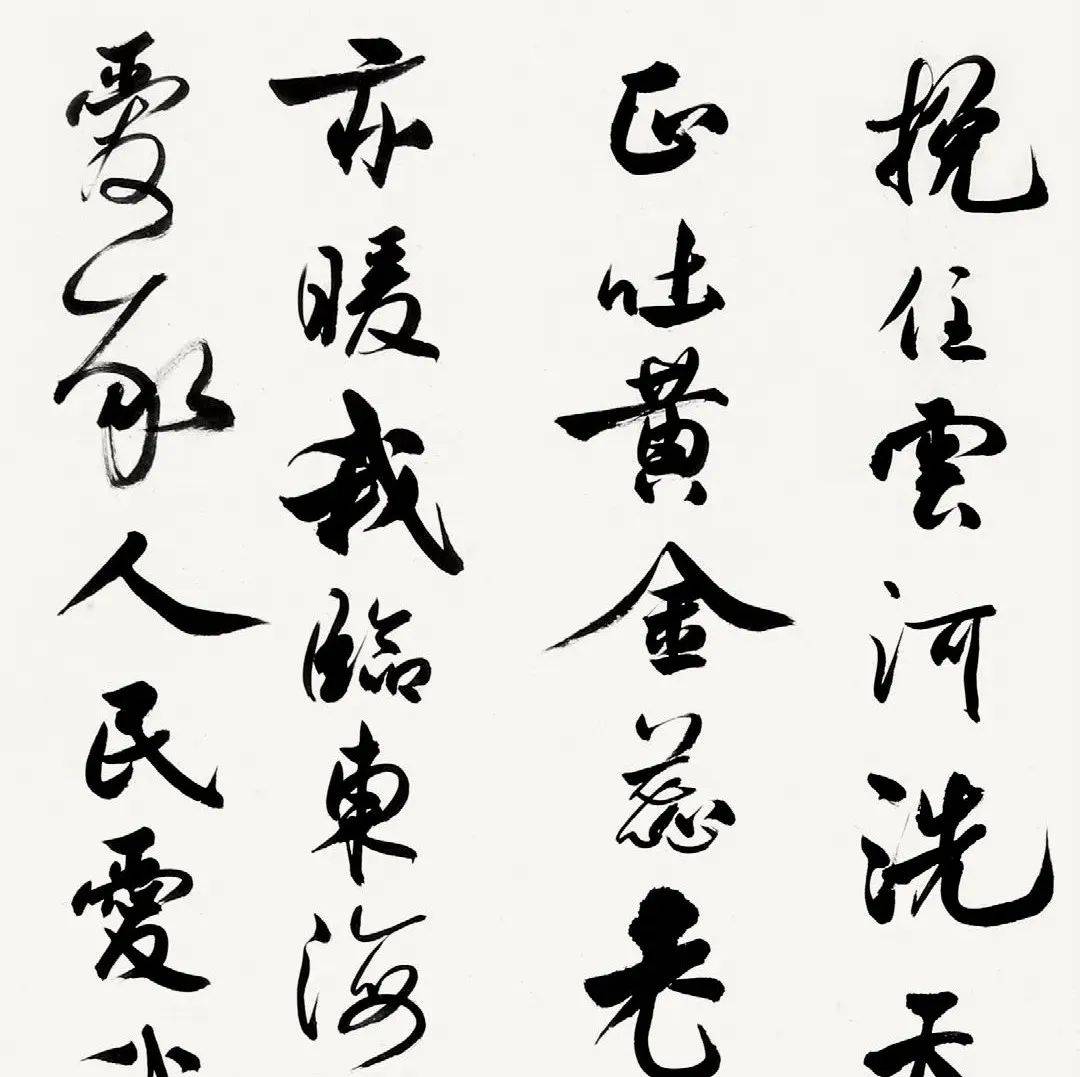 挽住雲河洗天
正吐黄金蕊老
亦暖我臨東海
愛我人民愛